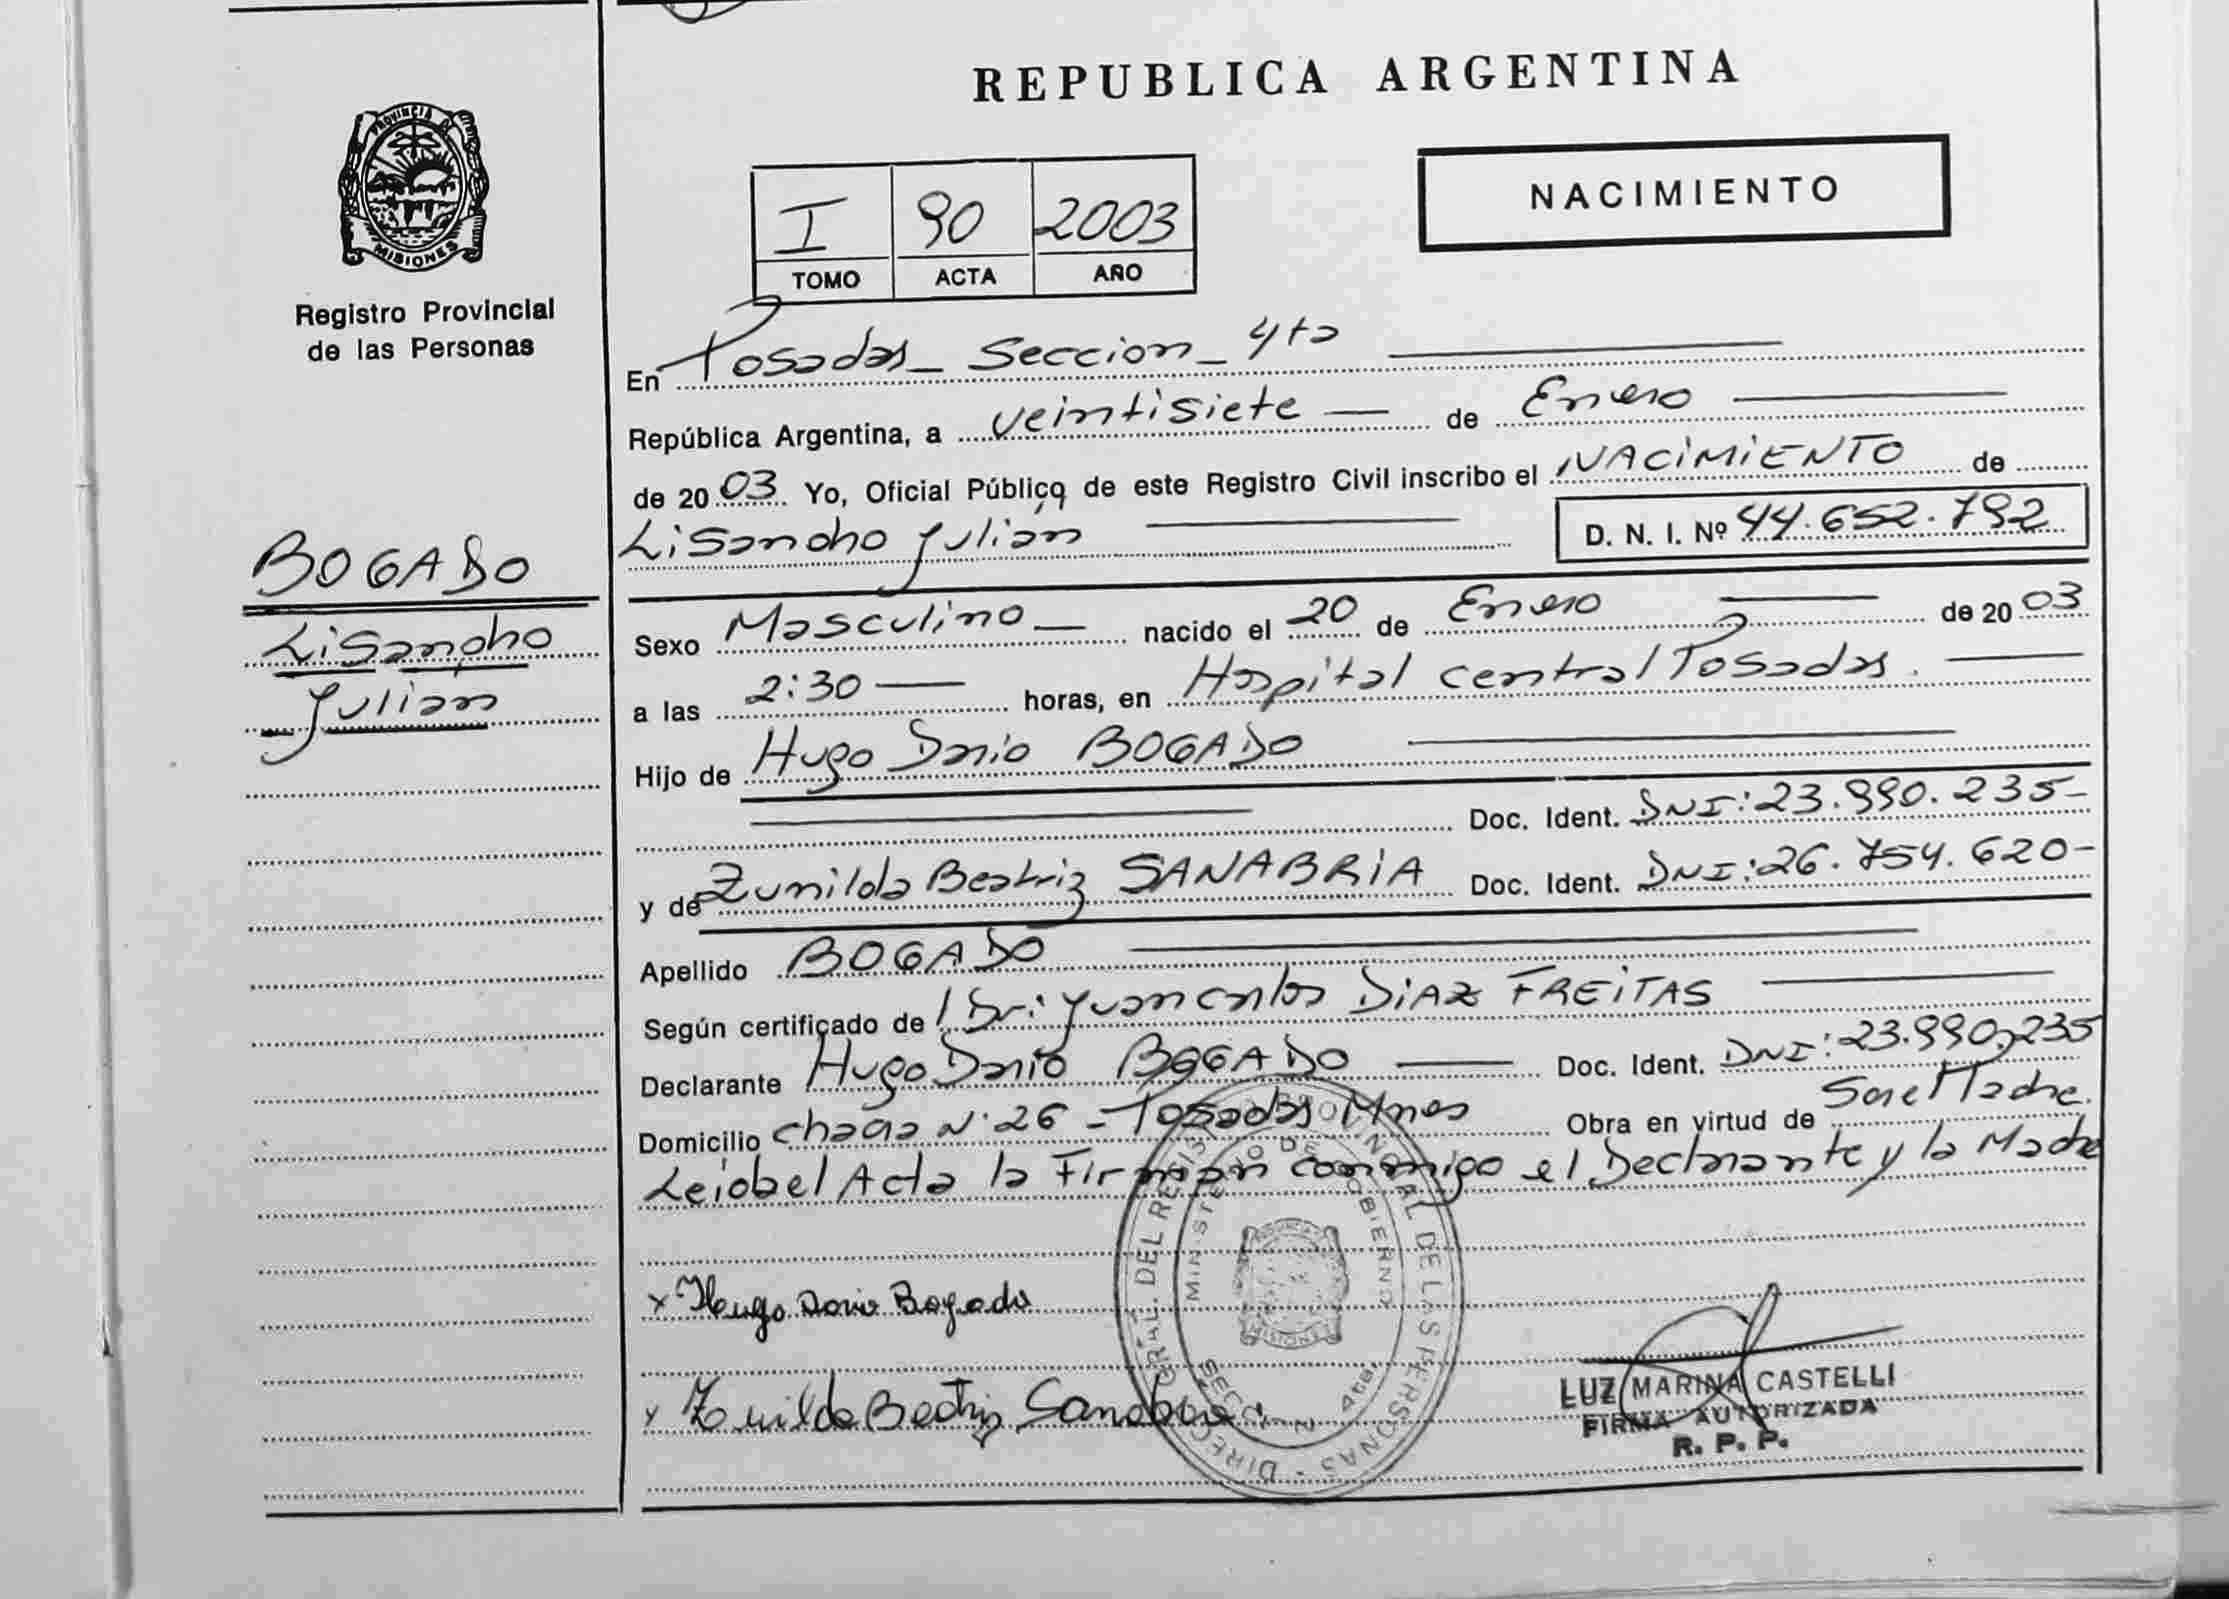 REPUBLICA ARGENTINA
PROVINCIA DE
MISIONES
Registro Provincial
de las Personas
NACIMIENTO
I 90 2003
TOMO ACTA AÑO
En Posadas - Seccion - 4ta
República Argentina, a veintisiete de Enero
de 2003 Yo, Oficial Público de este Registro Civil inscribo el NACIMIENTO de
Lisandro Julian D. N. I. Nº 44.652.792
BOGADO
Lisandro
Julian
Sexo Masculino nacido el 20 de Enero de 2003
a las 2:30 horas, en Hospital central Posadas.
Hijo de Hugo Dario BOGADO
Doc. Ident. DNI: 23.990.235-
y de Zunilda Beatriz SANABRIA Doc. Ident. DNI: 26.754.620-
Apellido BOGADO
Según certificado de Dr: Juan Carlos DIAZ FREITAS
Declarante Hugo Dario BOGADO Doc. Ident. DNI: 23.990.235
Domicilio chacra N° 26 - Posadas Mnes Obra en virtud de Madre.
Leida el Acta la Firman conmigo el Declarante y la Madre
x Hugo Dario Bogado
x Zunilda Beatriz Sanabria
DIRECC. GRAL. DEL REGIS PROVINCIAL DE LAS PERSONAS
MINISTERIO DE GOBIERNO
SECCION 4ta.
LUZ MARINA CASTELLI
FIRMA AUTORIZADA
R. P. P.